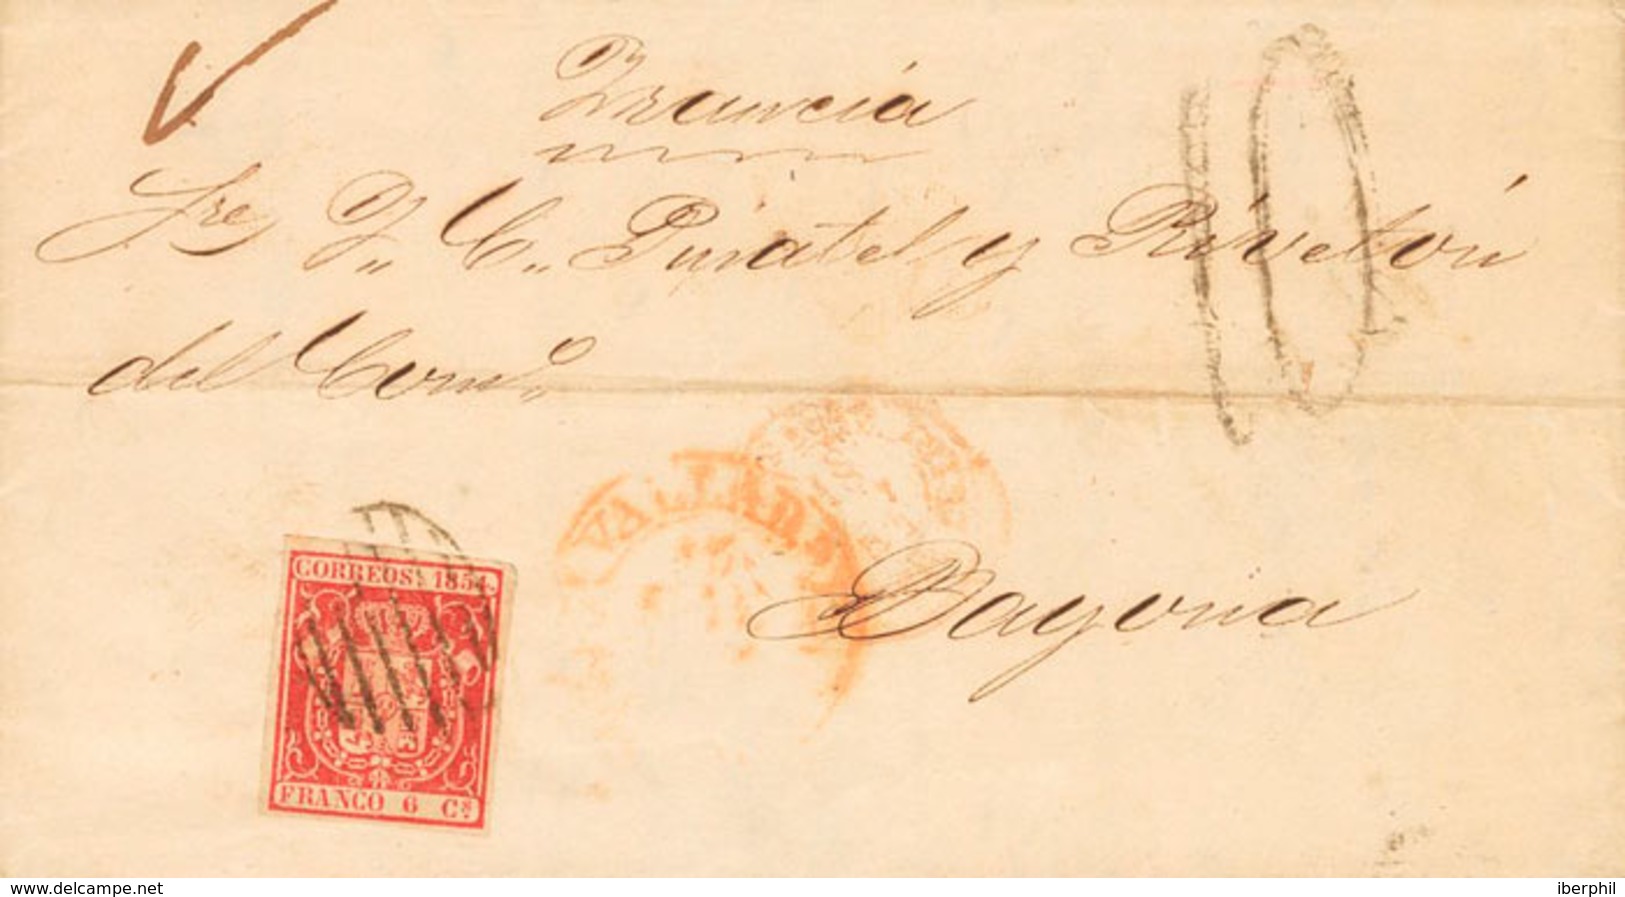 Francia
Sres J. C. Pujatel y Rivetón
del Comº.
10
VALLAD
Bayona
CORREOS 1854.
FRANCO 6 Cs
www.delcampe.net
iberphil